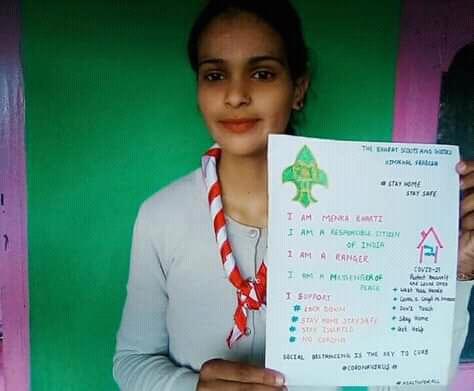 THE BHARAT SCOUTS AND GUIDES
HIMACHAL PRADESH
# STAY HOME
STAY SAFE
I AM MENKA BHARTI
I AM A RESPONSIBLE CITIZEN
OF INDIA
I AM A RANGER
I AM A MESSENGER OF
PEACE
I SUPPORT
# LOCK DOWN
# STAY HOME STAY SAFE
# STAY ISOLATED
# NO CORONA
COVID-19
Protect Yourself
and Loved Ones
+ Wash Your Hands
+ Cover Cough
+ Don't Touch
+ Stay Home
+ Get Help
SOCIAL DISTANCING IS THE KEY TO CURB
#CORONAVIRUS
#HEALTHFORALL